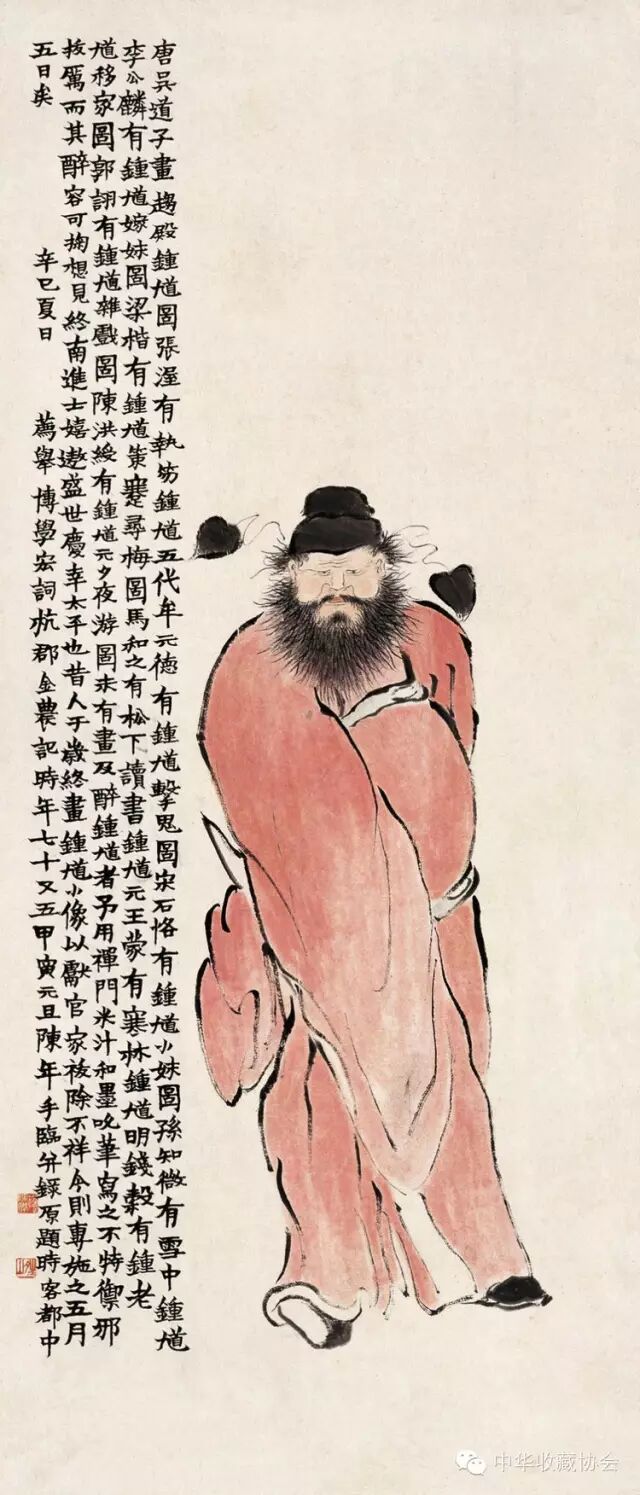 唐吳道子畫趨殿鍾馗圖張渥有執笏鍾馗五代牟元德有鍾馗擊鬼圖宋石恪有鍾馗小妹圖孫知微有雪中鍾馗
李公麟有鍾馗嫁妹圖梁楷有鍾馗策蹇尋梅圖馬和之有松下讀書鍾馗元王蒙有寒林鍾馗明錢穀有鍾老
馗移家圖郭詡有鍾馗雜戲圖陳洪綬有鍾馗元夕夜游圖未有畫及醉鍾馗者予用禪門米汁和墨吮筆寫之不特禦邪
抜厲而其醉容可掬想見終南進士嬉遨盛世慶幸太平也昔人于歲終畫鍾馗小像以獻官家祓除不祥今則專施之五月
五日矣　辛巳夏日　薦舉博學宏詞杭郡金農記時年七十又五甲寅元旦陳年手臨并錄原題時客都中
中华收藏协会